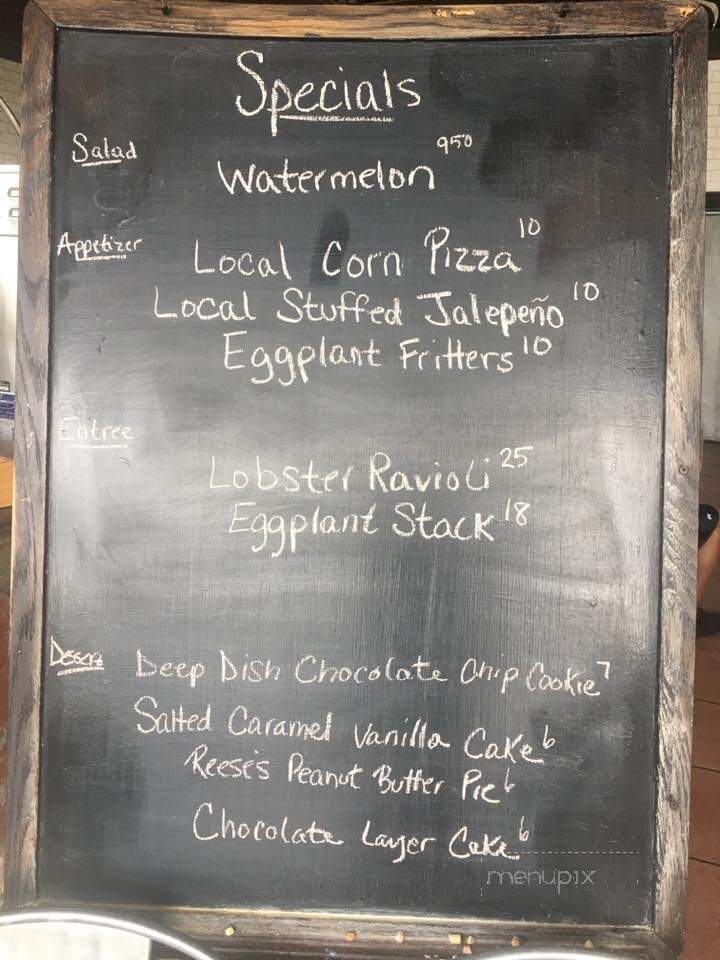 Specials
Salad
Watermelon 950
Appetizer
Local Corn Pizza 10
Local Stuffed Jalepeño 10
Eggplant Fritters 10
Entree
Lobster Ravioli 25
Eggplant Stack 18
Dessert
Deep Dish Chocolate Chip Cookie 7
Salted Caramel Vanilla Cake 6
Reese's Peanut Butter Pie 6
Chocolate Layer Cake 6
menupix